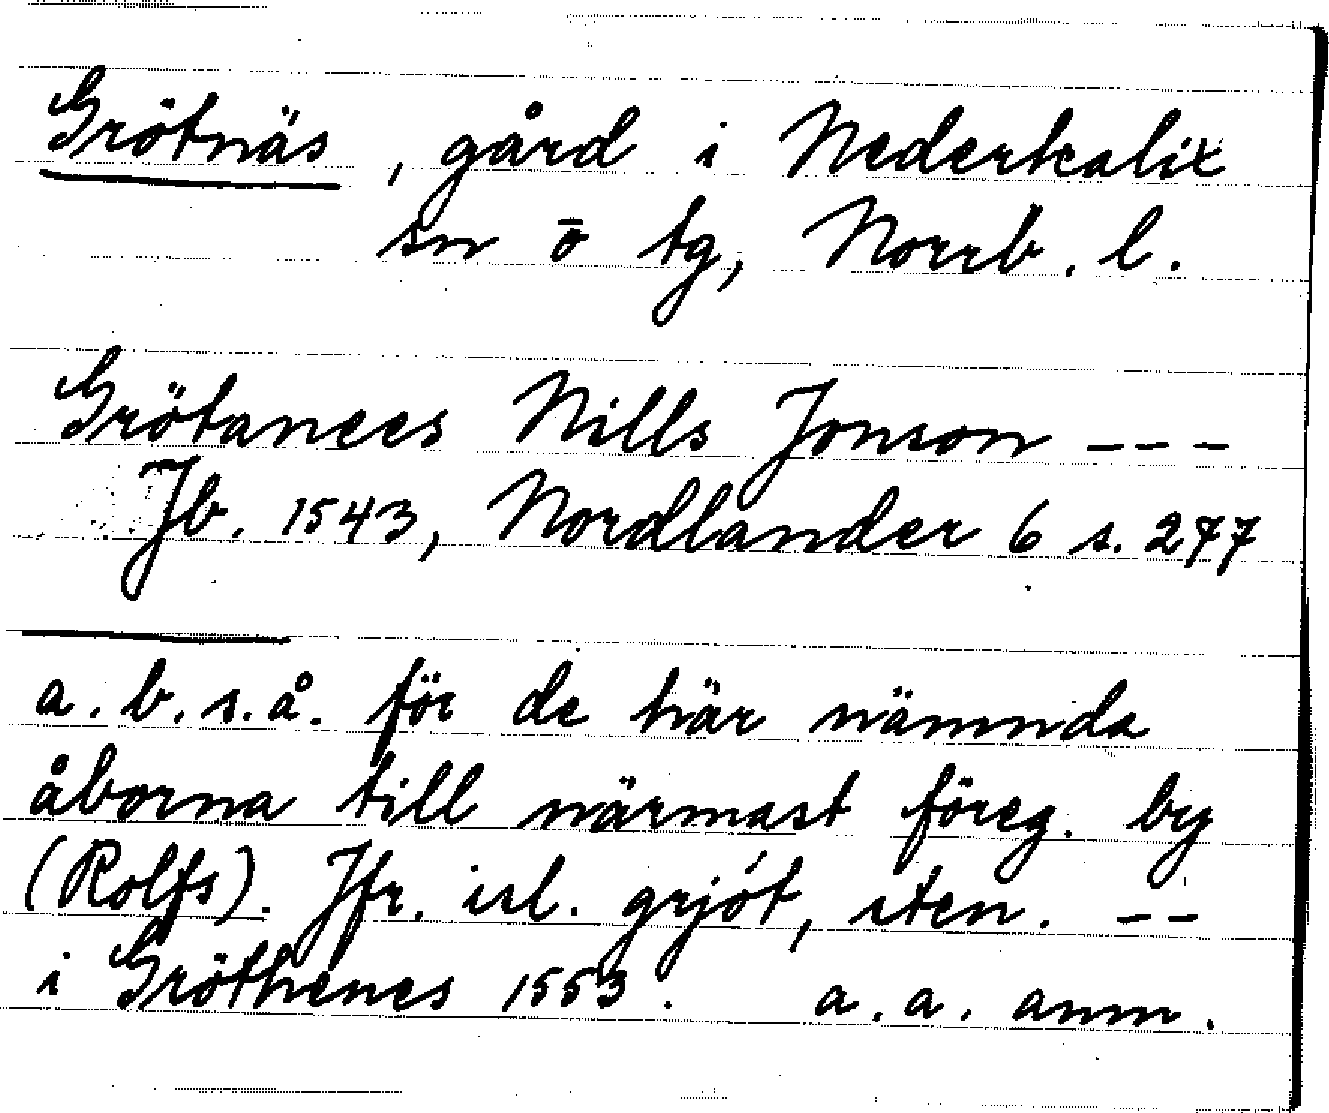 Grötnäs, gård i Nederkalix
sn ö tg, Norrb. l.
Grötanees Nills Jonson ---
Jb. 1543, Nordlander 6 s. 277
a.b.s.å. för de här nämnda
åborna till närmast föreg. by
(Rolfs). Jfr. isl. grjót, sten. --
i Gröthenes 1553. a.a. anm.